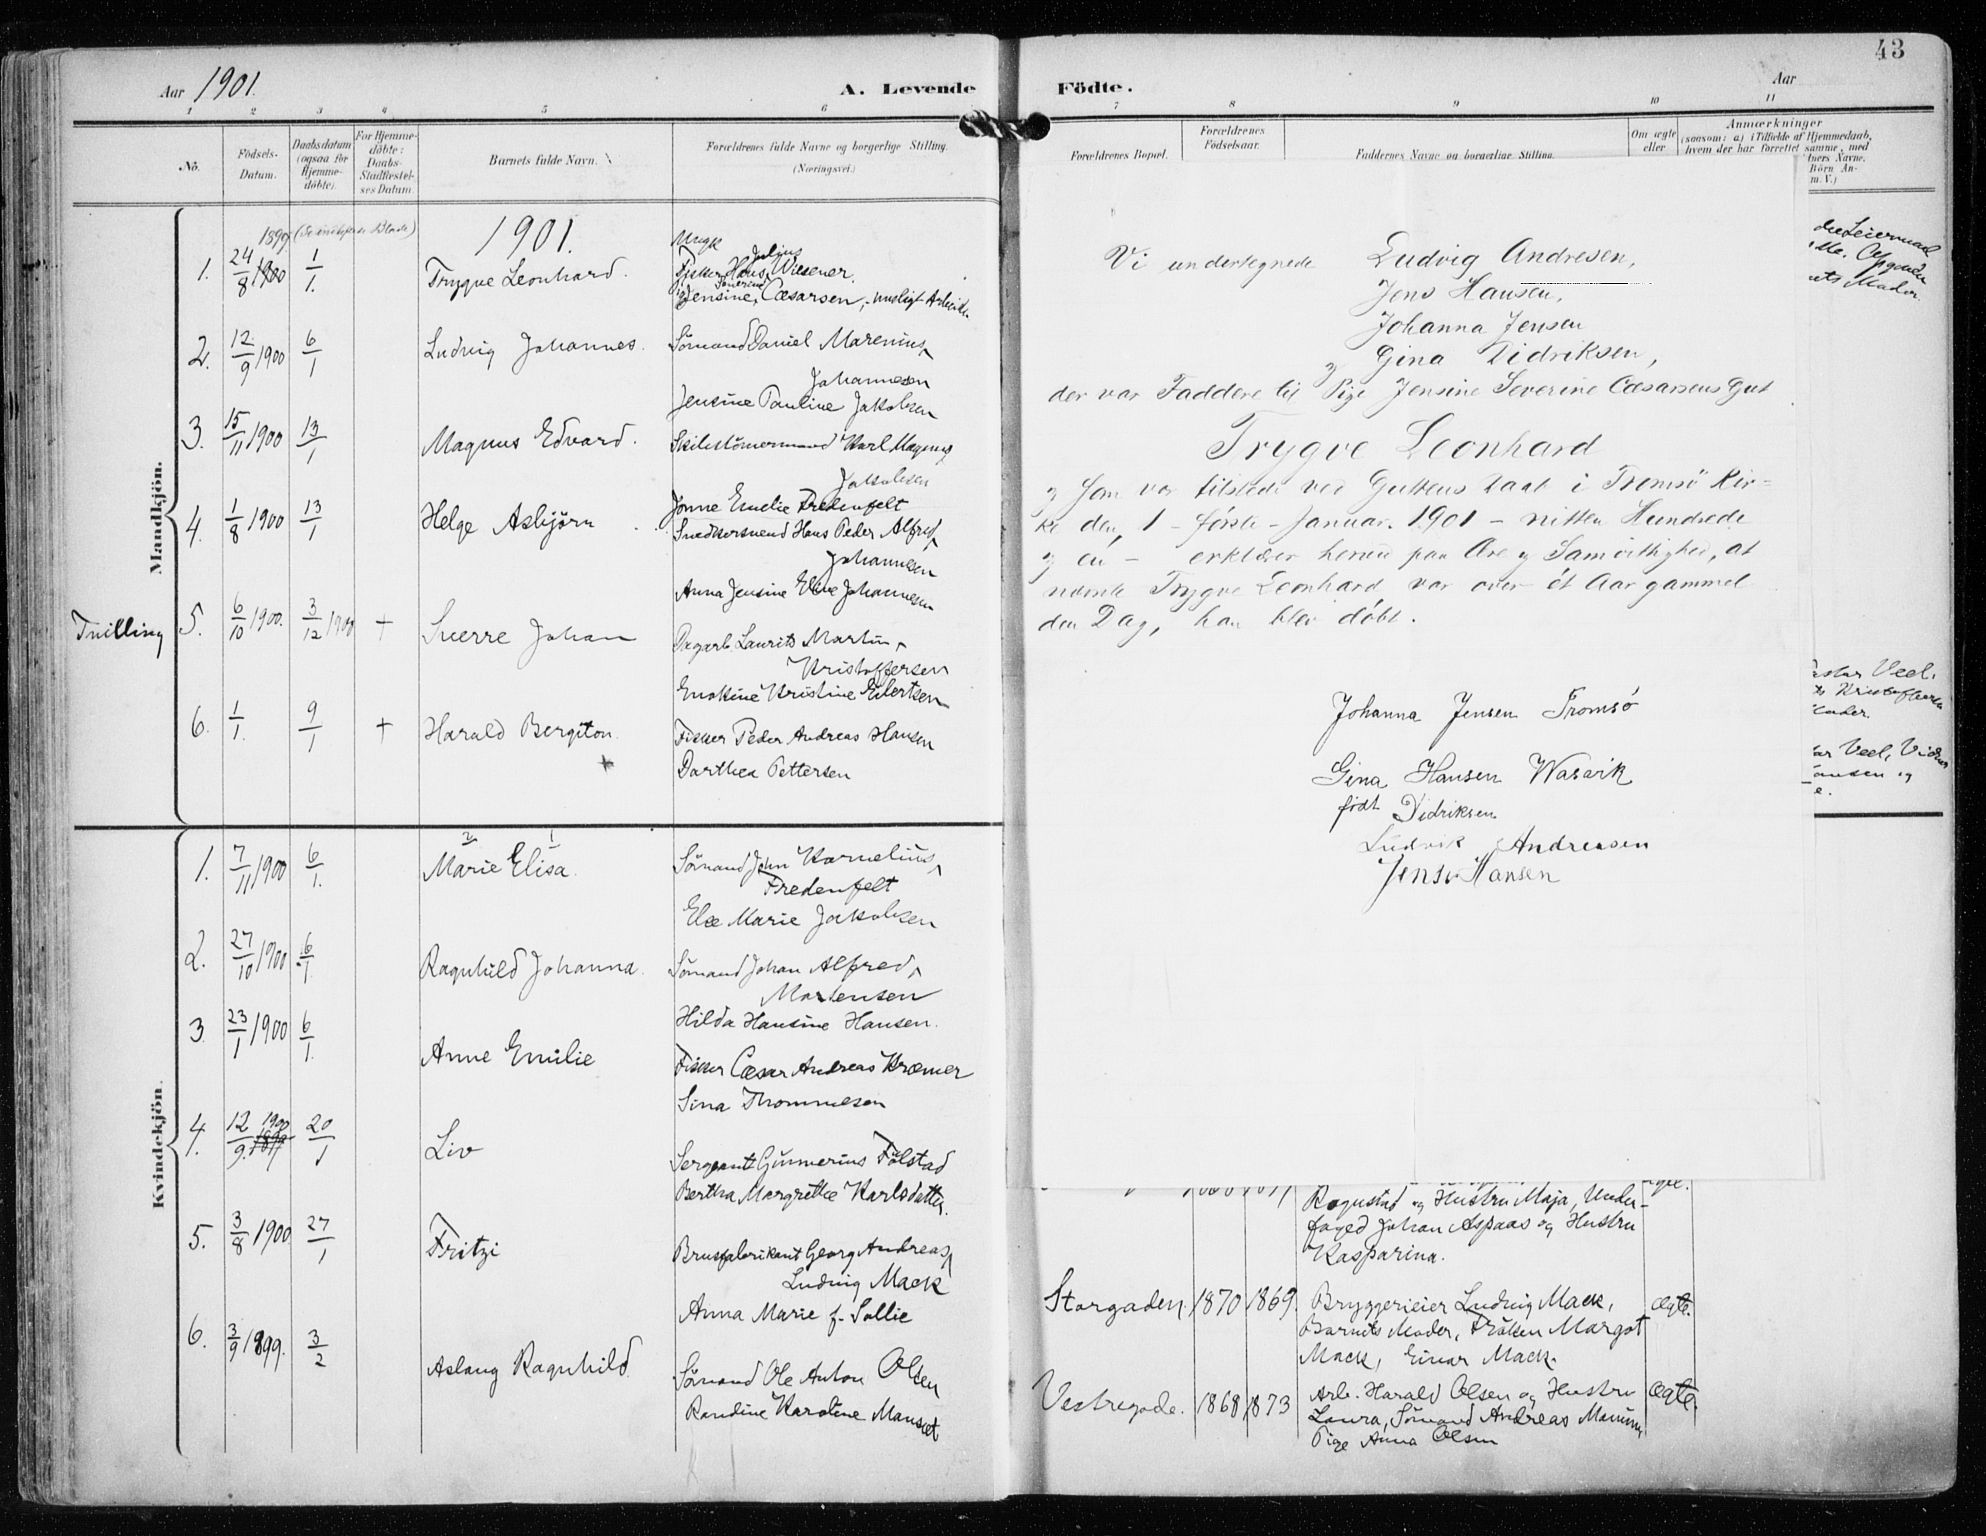 43
Aar 1901.
A. Levende
Födte.
Aar
1 2 3 4 5 6
7 8 9 10 11
No.
Födsels-
Datum.
Daabsdatum
(ogsaa for
Hjemme-
döbte).
For Hjemme-
döbte:
Daabs-
Stadfæstel-
ses Datum.
Barnets fulde Navn.
Forældrenes fulde Navne og borgerlige Stilling.
(Næringsvei.)
Forældrenes Bopæl.
Forældrenes
Födselsaar.
Faddernes Navne og borgerlige Stilling.
Om ægte
eller
Anmærkninger
(saasom: a) i Tilfælde af Hjemmedaab,
hvem der har forrettet samme, med
bers Navne.
Börn An-
m. V.)
Mandkjön.
1899 (Se indheftede Blade)
1901.
1. 24/8 1900 1/1 Trygve Leonhard.
Ungk
Fisker Hans Julius Wiesener
Pige Jensine Severine Cæsarsen, husligt Arbeide
2. 12/9 1900 6/1 Ludvig Johannes. Sömand Daniel Marenius
Johannesen
Jensine Pauline Jakobsen
3. 15/11 1900 13/1 Magnus Edvard. Skibstömermand Karl Magnus
Jakobsen
Jönne Emelie Fredenfelt
4. 1/8 1900 13/1 Helge Asbjörn Snedkersvend Hans Peder Alfred
Johannesen
Anna Jensine Eline Johannesen
Tvilling 5. 6/10 1900. 3/12 1900 + Sverre Johan Dagarb. Laurits Martin
Kristoffersen
Enokine Kristine Eilertsen
6. 1/1. 9/1 + Harald Bergiton. Fisker Peder Andreas Hansen
+
Darthea Pettersen
Kvindekjön.
2 1
1. 7/11 1900 6/1. Marie Elisa. Sömand John Kornelius
Fredenfelt
Else Marie Jakobsen
2. 27/10 1900 6/1 Ragnhild Johanna. Sömand Johan Alfred
Martensen
Hilda Hansine Hansen.
3 23/1 1900 6/1. Anne Emilie Fisker Cæsar Andreas Kræmer
Sina Thommesen
4. 12/9. 1900 1899 20/1 Liv Sergeant Gunnerius Fölstad
Bertha Margrethe Karlsdatter.
5. 3/8 1900 27/1 Fritzi Brusfabrikant Georg Andreas
Ludvig Mack
Anna Marie f. Sollie
6. 3/9 1899. 3/2 Aslaug Ragnhild. Sömand Ole Anton Olsen
Randine Karoline Manset
Vi undertegnede Ludvig Andresen,
Jens Hansen,
Johanna Jensen
og Gina Didriksen,
der var Faddere til Pige Jensine Severine Cæsarsens Gut
Trygve Leonhard
og som var tilstede ved Guttens Daab i Tromsö Kir-
ke den, 1 - förste - Januar. 1901 - nitten Hundrede
og en - erklærer herved paa Ære og Samvittighed, at
nævnte Trygve Leonhard, var over ét Aar gammel
den Dag, han blev döbt.
Johanna Jensen Tromsö
Gina Hansen Wasvik
födt Didriksen
Ludvik Andreasen
Jens Hansen
Veel.
Kristoffersen
Veel,
Hansen og
Rognstad og Hustru Maja, Under-
foged Johan Aspaas og Hustru
Kasparina.
Storgaden. 1870 1869. Bryggerieier Ludvig Mack, Ægte.
Barnets Moder, Fröken Margot
Mack, Einar Mack.
Vestregade. 1868 1873 Arb. Harald Olsen og Hustru Ægte.
Laura, Sömand Andreas
Pige Anna Olsen